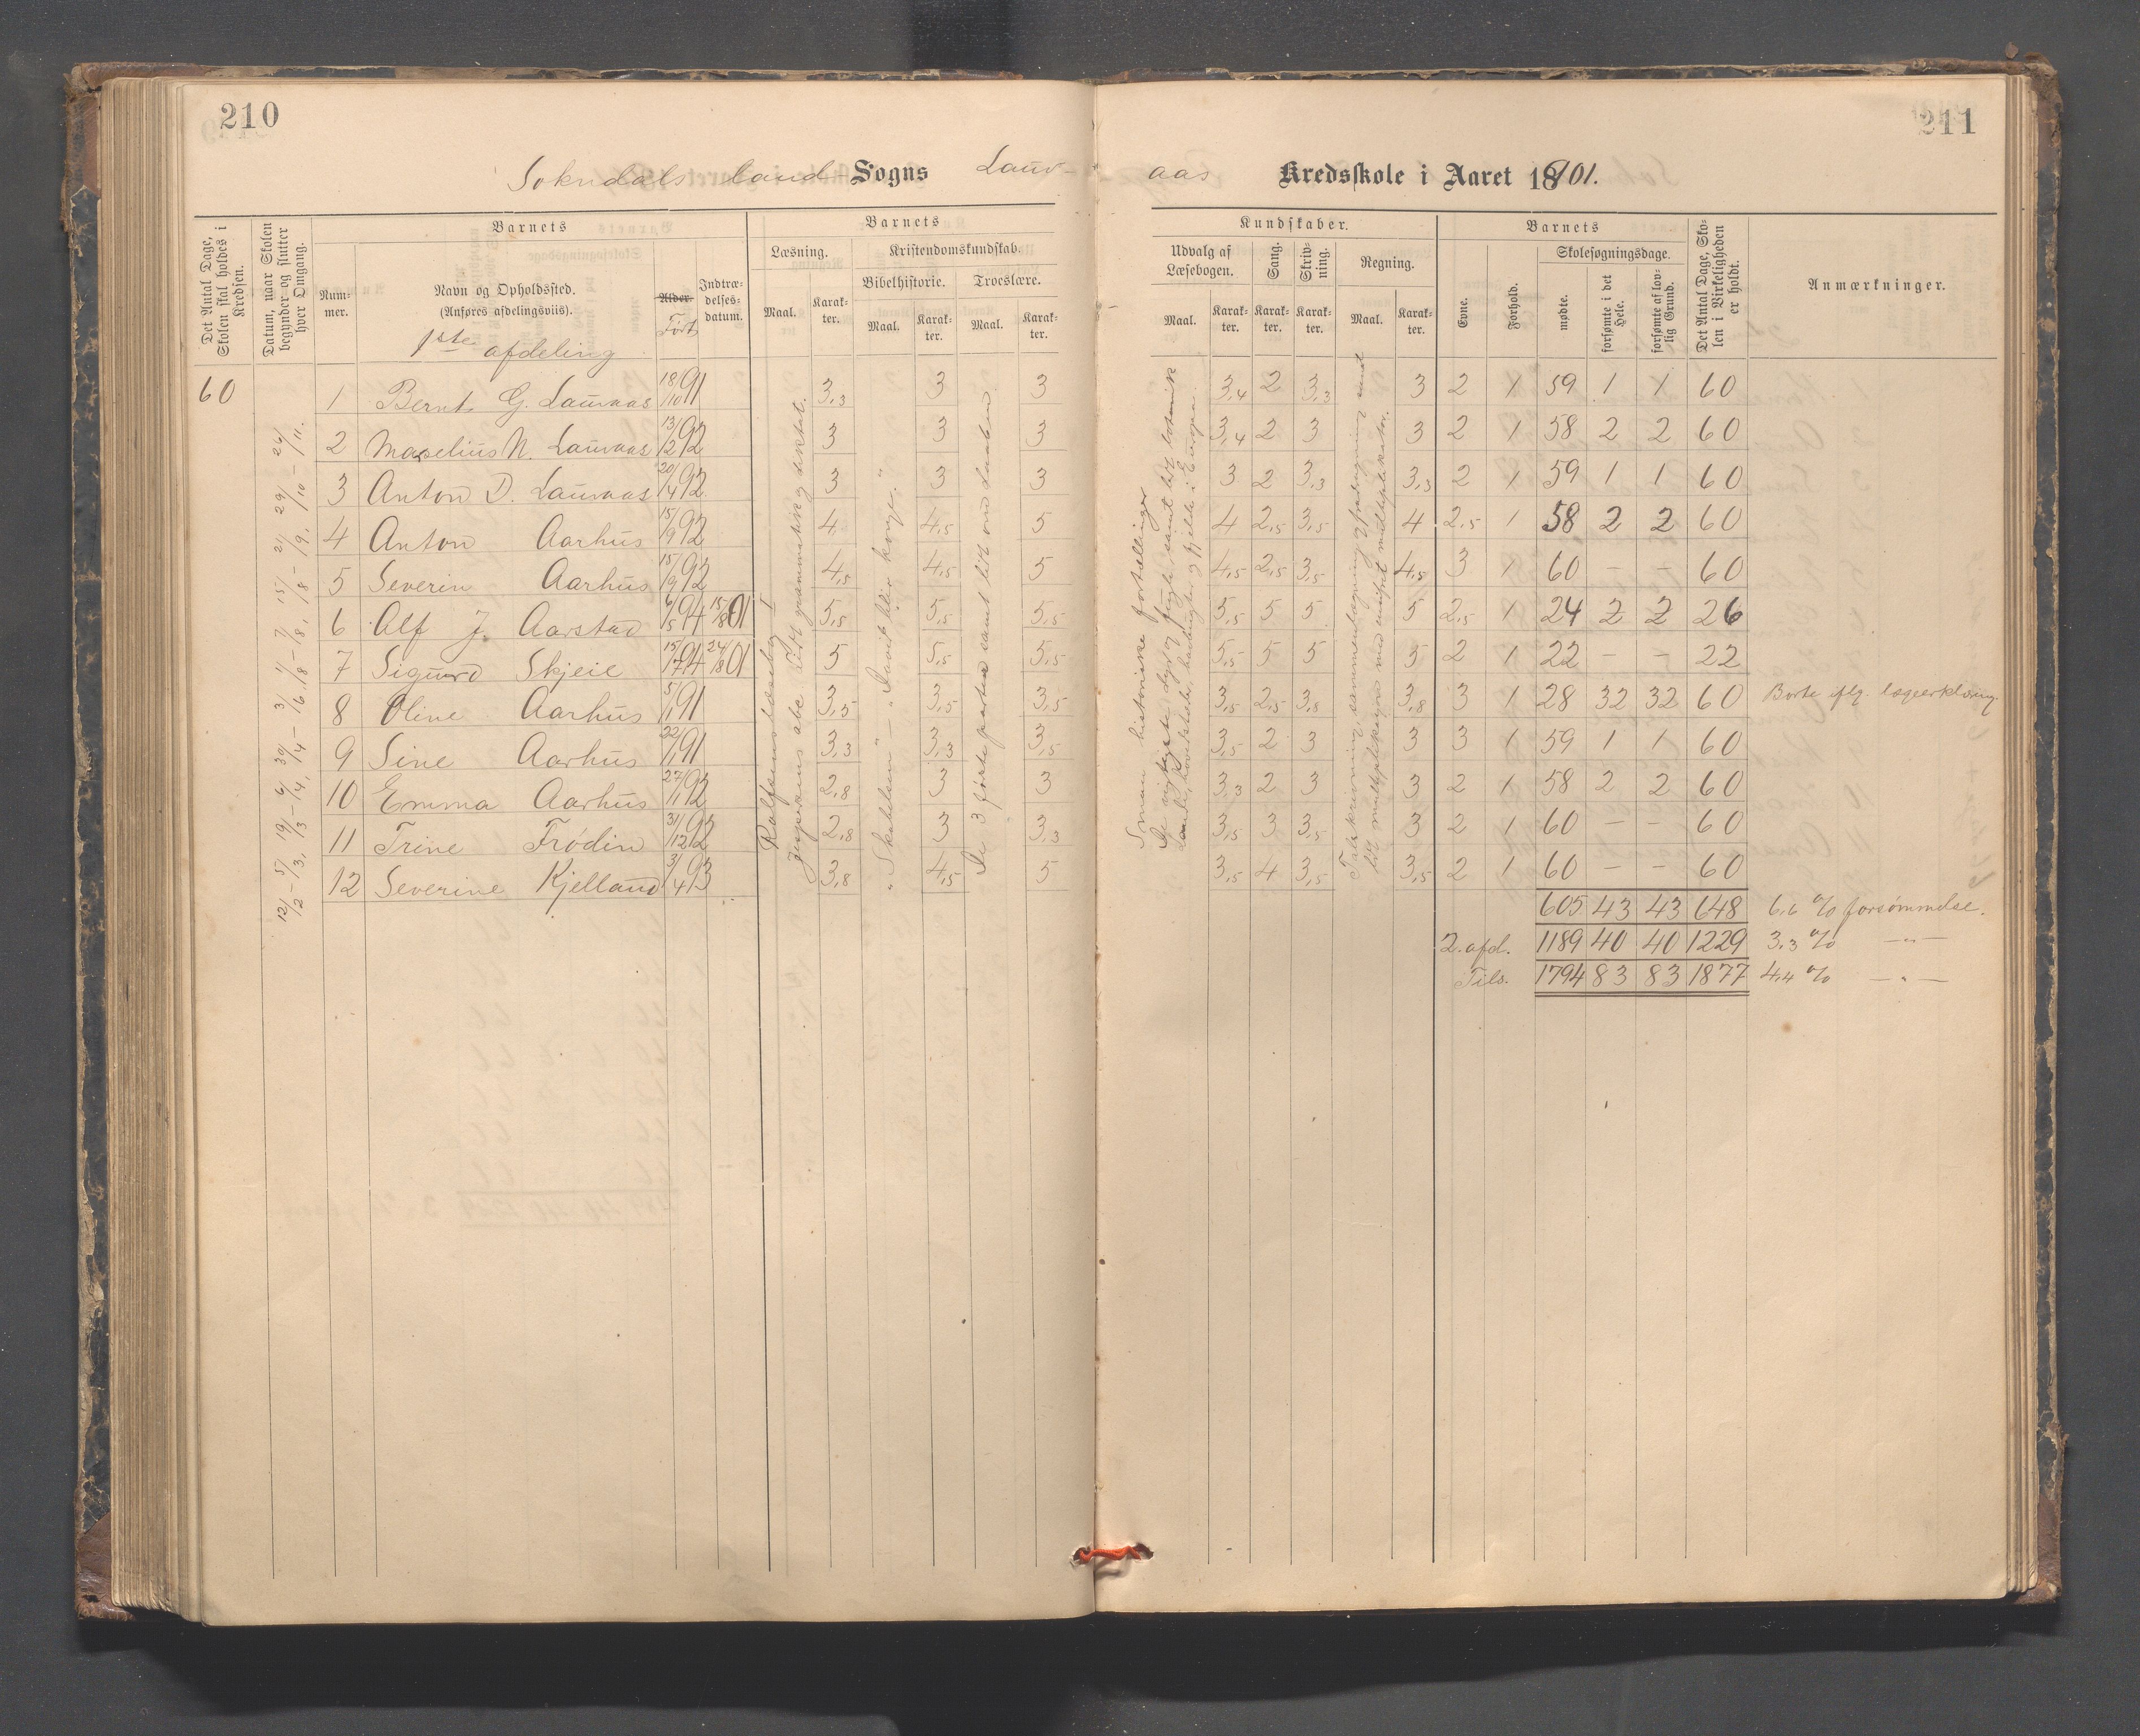 210
Sokndals land- Sogns Lauv-
Det Antal Dage, Skolen skal holdes i Kredsen.
Datum, naar Skolen begynder og slutter hver Omgang.
Barnets
Num-mer.
Navn og Opholdssted.
(Anføres afdelingsviis).
1ste afdeling
Alder. Født
Indtræ-delses-datum.
Barnets
Læsning.
Kristendomskundskab.
Bibelhistorie. Troeslære.
Maal. Karak-ter. Maal. Karak-ter. Maal. Karak-ter.
60
12/2 - 5/3, 19/3 - 6/4, 30/4 - 3/6
1 Bernt G. Lauvaas 18/10 91 3,3 3 3
2 Marselius N. Lauvaas 13/2 92 3 3 3
3 Anton D. Lauvaas 20/4 92 3 3 3
4 Anton Aarhus 15/9 92 4 4,5 5
5 Severin Aarhus 15/9 92 4,5 4,5 5
6 Alf J. Aarstad 6/5 94 15/8 01 5,5 5,5 5,5
7 Sigurd Skjeie 94 24/8 01 5 5,5 5,5
8 Oline Aarhus 5/1 91 3,5 3,5 3,5
9 Sine Aarhus 22/1 91 3,3 3,3 3,5
10 Emma Aarhus 27/1 92 2,8 3 3
11 Trine Frödin 31/12 92 2,8 3 3,3
12 Severine Kjelland 3/4 93 3,8 4,5 5
Rolfsens læsebog I
Jespersens abc. Lidt grammatik og diktat.
"Skabelsen" - "David blir konge".
De 3 første parter samt lidt om
211
aas Kredsskole i Aaret 1901.
Kundskaber.
Udvalg af Læsebogen.
Sang.
Skriv-ning.
Regning.
Maal. Karak-ter. Karak-ter. Karak-ter. Maal. Karak-ter.
Barnets
Evne.
Forhold.
Skolesøgningsdage.
mødte.
forsømte i det Hele.
forsømte af lov-lig Grund.
Det Antal Dage, Sko-len i Virkeligheden er holdt.
Anmærkninger.
Smaa historiske fortællinger
De vigtigste dyr og fugle samt lidt botanik
Lande, hovedstæder, havbugter og fjelde i Europa.
Talskrivning, sammenlægning og fradragning samt
lidt multiplikasjon med ensifret multiplikator.
3,4 2 3,3 3 2 1 59 1 1 60
3,4 2 3 3 2 1 58 2 2 60
3 2 3,3 3,3 2 1 59 1 1 60
4 2,5 3,5 4 2,5 1 58 2 2 60
4,5 2,5 3,5 4,5 3 1 60 - - 60
5,5 5 5 5 2,5 1 24 2 2 26
5,5 5 5 5 2 1 22 - - 22
3,5 2,5 3,8 3,8 3 1 28 32 32 60 Borte eflg. lægeerklæring.
3,5 2 3 3 3 1 59 1 1 60
3,3 2 3 3 2 1 58 2 2 60
3,5 3 3,5 3 2 1 60 - - 60
3,5 4 3,5 3,5 2 1 60 - - 60
605 43 43 648 6,6 % forsømmelse.
2. afd. 1189 40 40 1229 3,3 % -"-
Tils. 1794 83 83 1877 4,4 % -"-